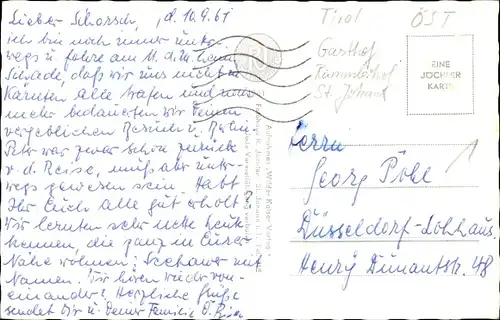 Lieber Schorsch, d. 10.9.61
ich bin noch immer unter-
wegs u. fahre am 11. d. M. heim
Schade, daß wir uns nicht in
Kärnten alle trafen und noch
mehr bedauerten wir Deinen
vergeblichen Besuch in Berlin.
Peter war zwar schon zurück
v. d. Reise, muß aber unter-
wegs gewesen sein. Habt
Ihr Euch alle gut erholt?
Wir lernten sehr nette Leute
kennen, die ganz in Eurer
Nähe wohnen;
Namen. Wir hören wieder von-
einander? Herzliche Grüße
sendet Dir u. Deiner Familie
Tirol
ÖST
Gasthof
Rummlerhof
St. Johann
EINE
JÖCHLER
KARTE
Herrn
Georg Pöhl
Düsseldorf-Lohhaus.
Henry Dunantstr. 48